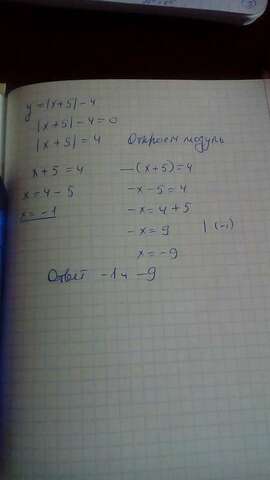 y = |x+5| - 4
|x+5| - 4 = 0
|x+5| = 4 Откроем модуль
x + 5 = 4
x = 4 - 5
x = -1
-(x+5) = 4
-x - 5 = 4
-x = 4 + 5
-x = 9 | (-1)
x = -9
Ответ -1 и -9